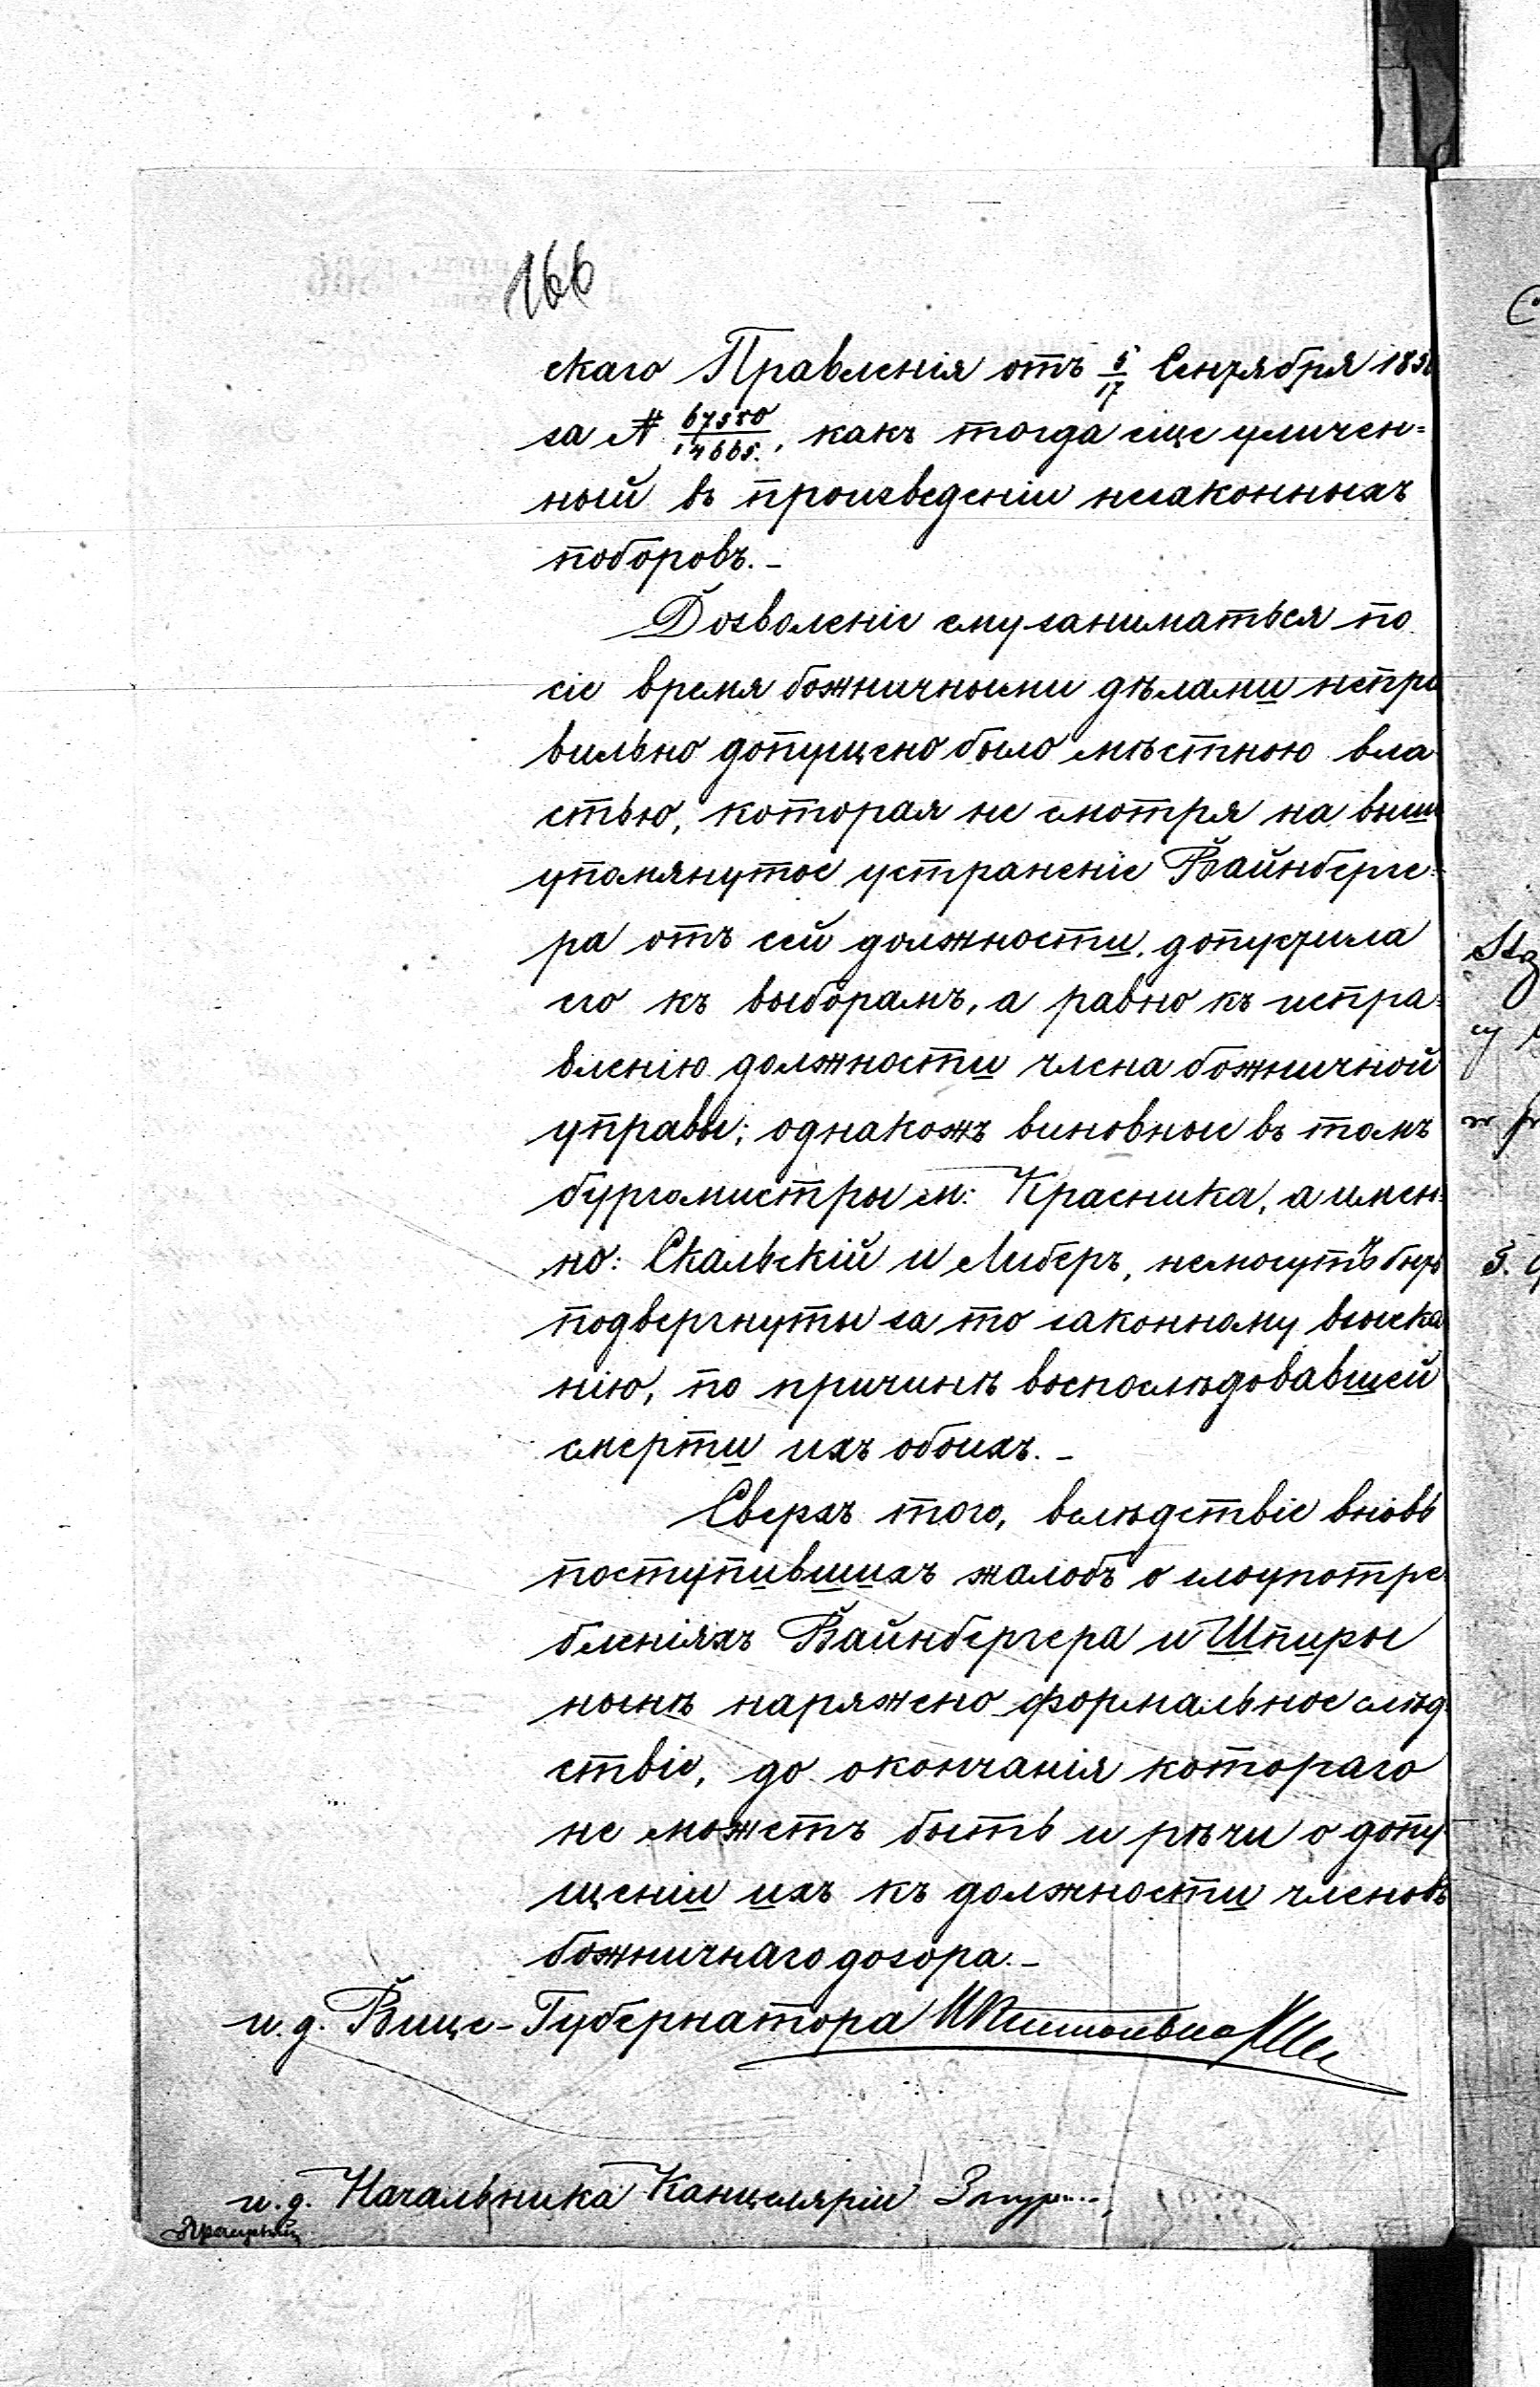 166
скаго Правленія отъ 5/17 Сентября 185
за № 67550/14665., какъ тогда еще уличен=
ный въ произведеніи незаконныхъ
поборовъ.-
Дозволеніе ему заниматься по
сіе время божничными дѣлами непра
вильно допущено было мѣстною вла
стью, которая не смотря на выше
упомянутое устраненіе Вайнберге=
ра отъ сей должности, допустила
его къ выборамъ, а равно къ испра=
вленію должности члена божничной
управы; однакожъ виновные въ томъ
бургомистры м: Красника, а имен=
но: Скальскій и Либеръ, не могутъ быть
подвергнуты за то законному взыска
нію, по причинѣ воспослѣдовавшей
смерти ихъ обоихъ.-
Сверхъ того, вслѣдствіе вновь
поступившихъ жалобъ о злоупотре
бленіяхъ Вайнбергера и Шпиры
нынѣ наряжено формальное слѣд
ствіе, до окончанія котораго
не можетъ быть и рѣчи о допу
щеніи ихъ къ должности членовъ
божничнаго дозора.-
и. д. Вице-Губернатора
и. д. Начальника Канцеляріи